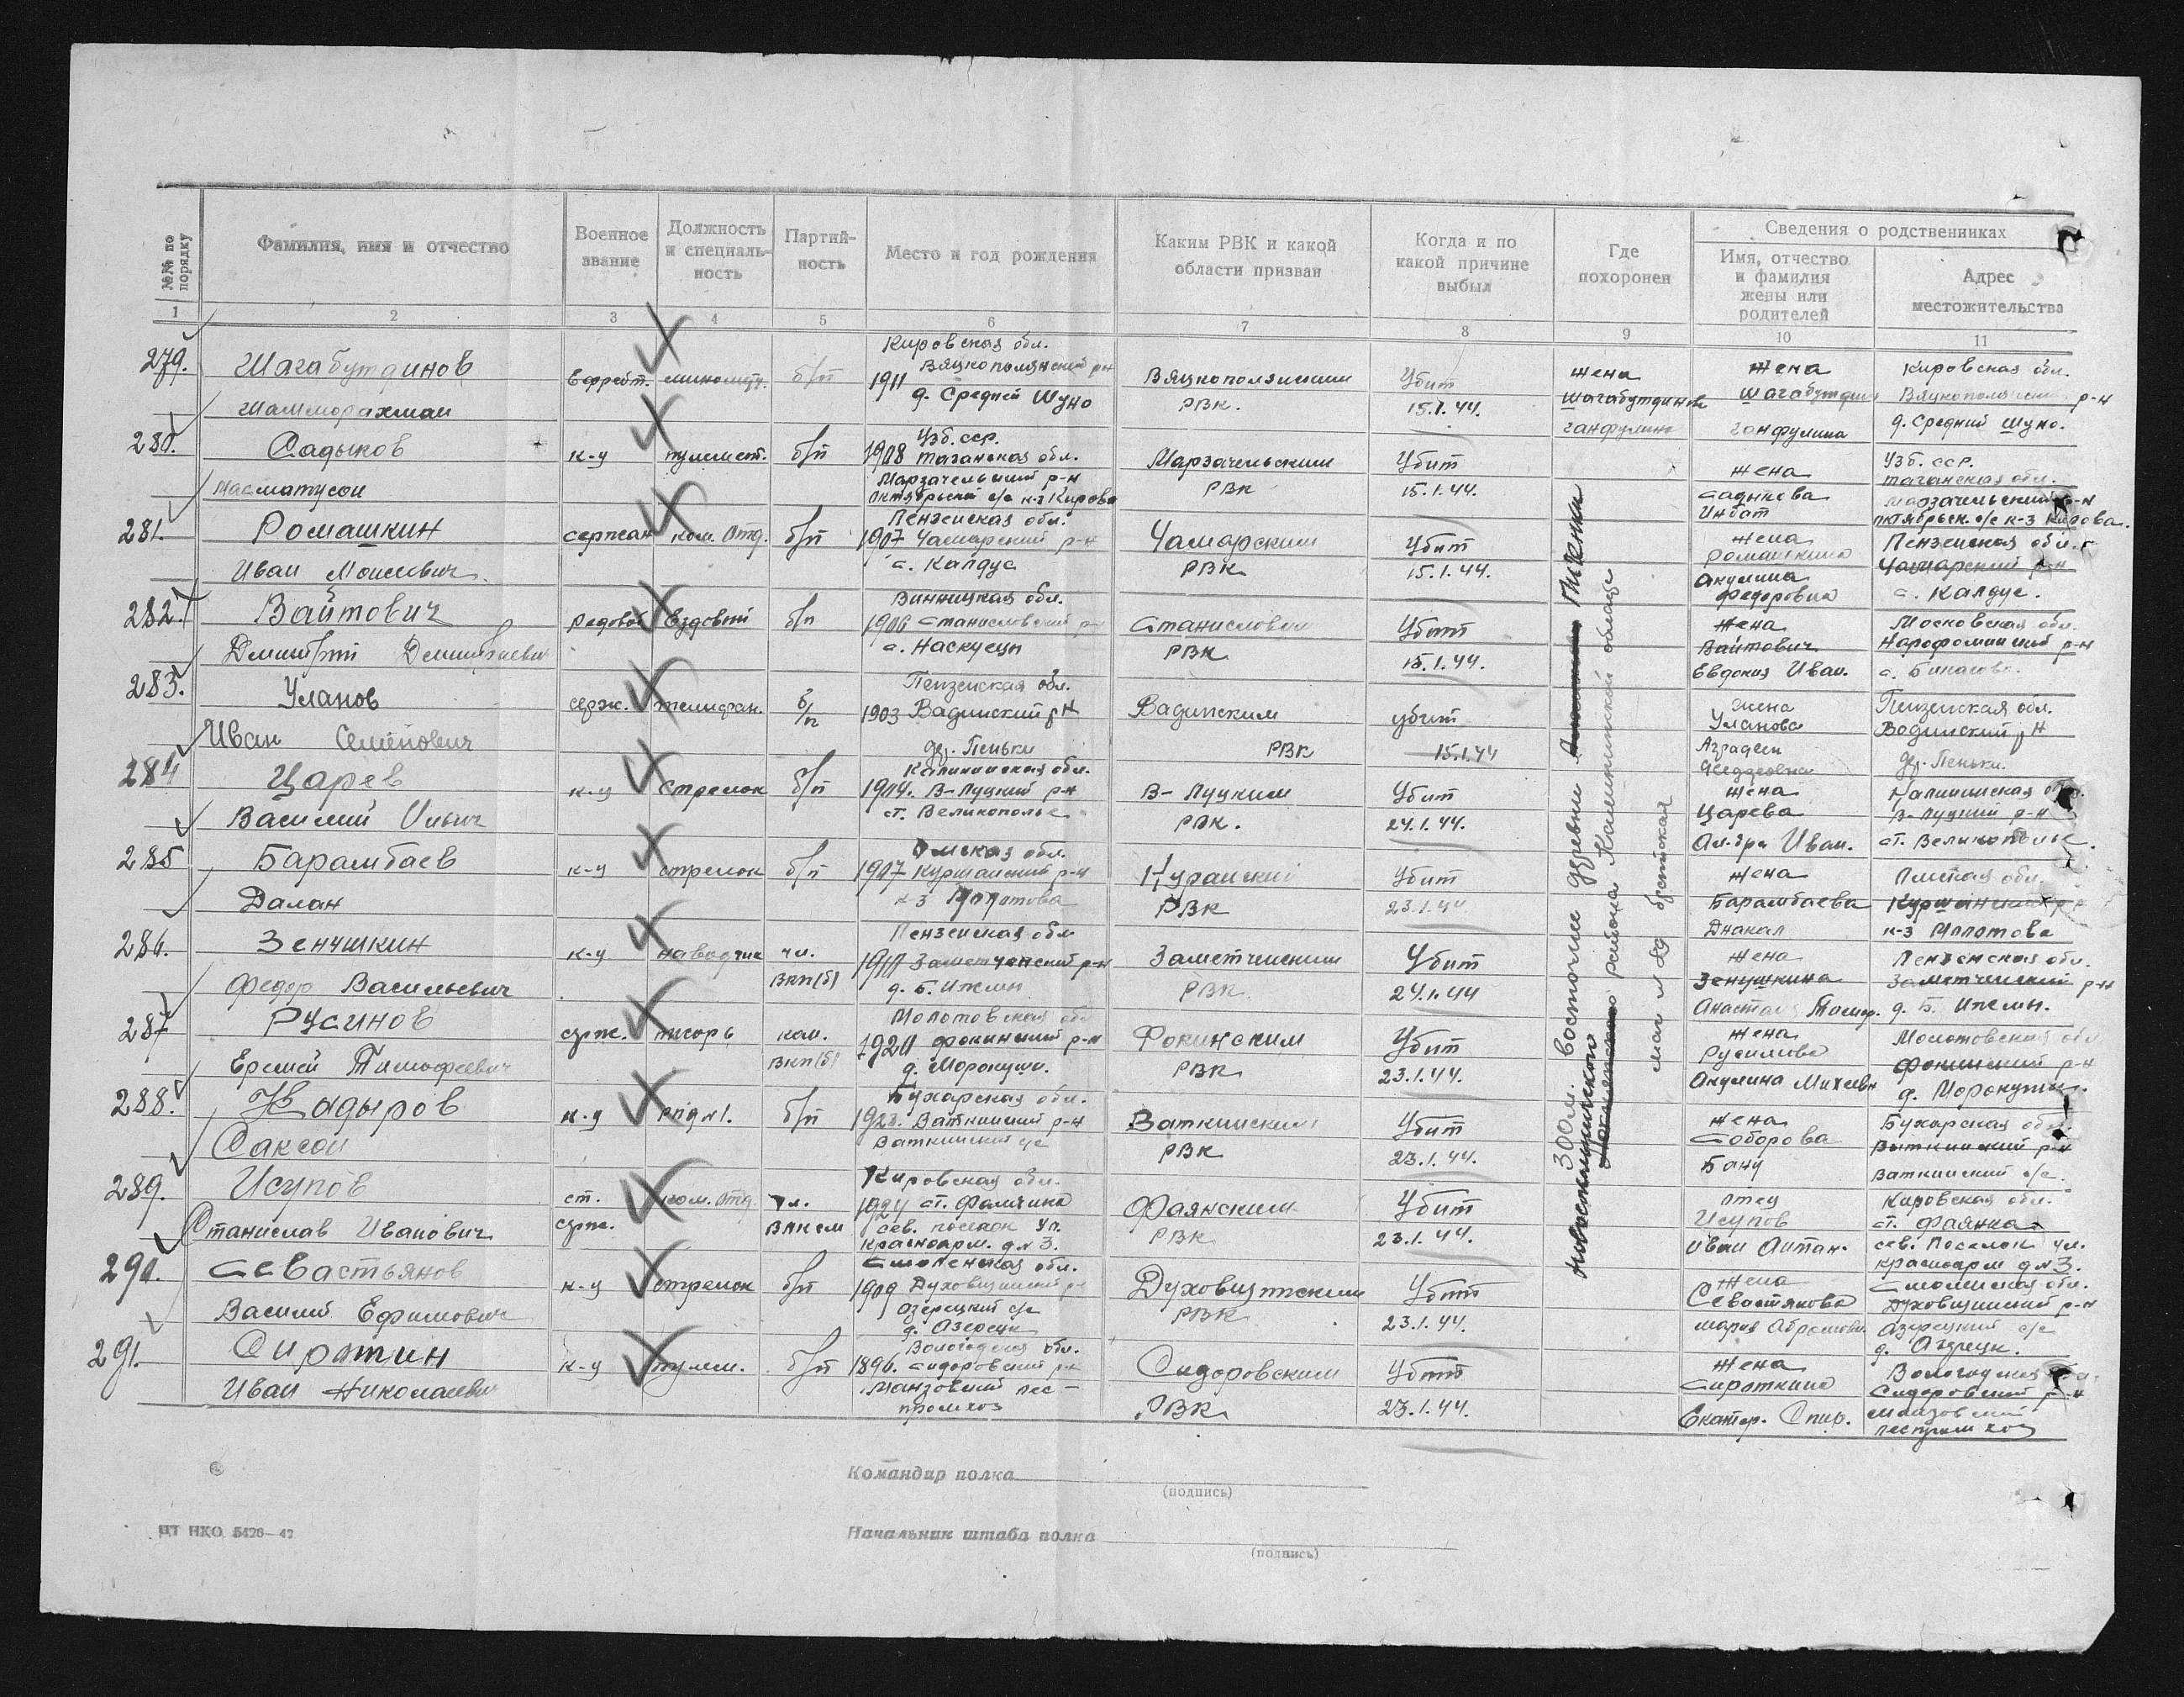 №№ по порядку
Фамилия, имя и отчество
Военное звание
Должность и специаль-ность
Партий-ность
Место и год рождения
Каким РВК и какой области призван
Когда и по какой причине выбыл
Где похоронен
Сведения о родственниках
Имя, отчество и фамилия жены или родителей
Адрес местожительства
1 2 3 4 5 6 7 8 9 10 11
279. Шагабутдинов
Ефрейт. б/п
Кировская обл.
1911 Вяцкополянский р-н
д. Средний Шуно
Вяцкополянским РВК.
Убит 15.1.44.
жена Шагабутдинова ганфулина
жена Шагабутдин ганфулина
Кировская обл.
р-н
д. Средний Шуно.
280. Садыков
к-ц пулемет. б/п
Узб. сср.
1908 ташанская обл.
Марзачельский р-н
октябрьский с/с к-з Кирова
Марзачельским РВК
Убит 15.1.44.
жена садыкова Инбат
Узб. сср.
октябрьск. с/с к-з Кирова.
281. Ромашкин
Иван Моисеевич
сержан ком. Отд. б/п
Пензенская обл.
1907 Чамарский р-н
с. Калдус
Чамарским РВК
Убит 15.1.44.
жена ромашкина Акулина Федоровна
Пензенская обл.
Чамарский р-н
с. Калдус.
282. Вайтович
Дмитрий Дмитриевич
Редовой Ездовой б/п
Винницкая обл.
1906 Станисловский р-
с. Наскусцы
Станисловски РВК
Убит 15.1.44.
жена Вайтович Евдокия Иван.
Московская обл.
Нарофоминский р-н
283. Уланов
Иван Семенович
серж. телефон. б/п
Пензенская обл.
1903 Вадинский р-н
дер. Пеньки
Вадинским РВК
убит 15.1.44
жена Уланова
Пензенская обл.
Вадинский р-н
дер. Пеньки.
284 Царев
Василий Ильич
к-ц Стрелок б/п
Калининская обл.
1914. В-Луцкий р-н
ст. Великополье
В-Луцким РВК.
Убит 24.1.44.
жена Царева Ал-дра Иван.
Калининская обл.
В-Луцкий р-н
ст. Великополье.
285 Барамбаев
Далан
к-ц стрелок б/п
Омская обл.
1907 Куршанский р-н
к-з Молотова
РВК
Убит 23.1.44
жена Барамбаева Днакал
к-з Молотова
286. Зенушкин
Федор Васильевич
к-ц наводчик чл. ВКП(б)
Пензенская обл
1911 Заметченский р-н
Заметченским РВК
Убит 24.1.44
жена Зенушкина
Пензенская обл.
Заметченский р-н
287 Русинов
Еремей Тимофеевич
серж. писарь кан. ВКП(б)
Молотовская обл
1920 Фокинский р-н
д. Морокуши.
Фокинским РВК
Убит 23.1.44.
жена Русинова Акулина Михеевн
Молотовская обл
Фокинский р-н
д. Морокуши.
288. Кадыров
Саксон
к-ц б/п
Бухарская обл.
1923. Ваткинский р-н
Ваткинский с/с
Ваткинским РВК
Убит 23.1.44.
жена Соборова Бану
Бухарская обл.
Ваткинский р-н
Ваткинский с/с.
289. Исупов
Станислав Иванович
ст. серж. ком. отд. чл. ВЛКСМ
Кировская обл.
1924 ст. Фаленка
сев. поселок ул.
красноарм. д № 3.
Фаянским РВК
Убит 23.1.44.
отец Исупов Иван Антан.
Кировская обл.
ст. Фаянка
сев. Поселок ул.
красноарм д № 3.
290. Севастьянов
Василий Ефимович
к-ц стрелок б/п
Смоленская обл.
1909 Духовщинский р-н
Озерецкий с/с
д. Озерецк
Духовщинским РВК
Убит 23.1.44.
жена Севастьянова мария Абрамовн.
Смоленская обл.
Духовщинский р-н
Озерецкий с/с
291. Сиротин
Иван Николаевич
к-ц пулем. б/п
Вологодская обл.
1896. Сидоровский р-н
Манзовский лес-
промхоз
Сидоровским РВК
Убит 23.1.44.
жена Сироткина Екатер. Спир.
Сидоровский р-н
300 м. восточнее деревни Пичинки
района Калининской области
Командир полка
(подпись)
Начальник штаба полка
(подпись)
ЦТ НКО 5426—42